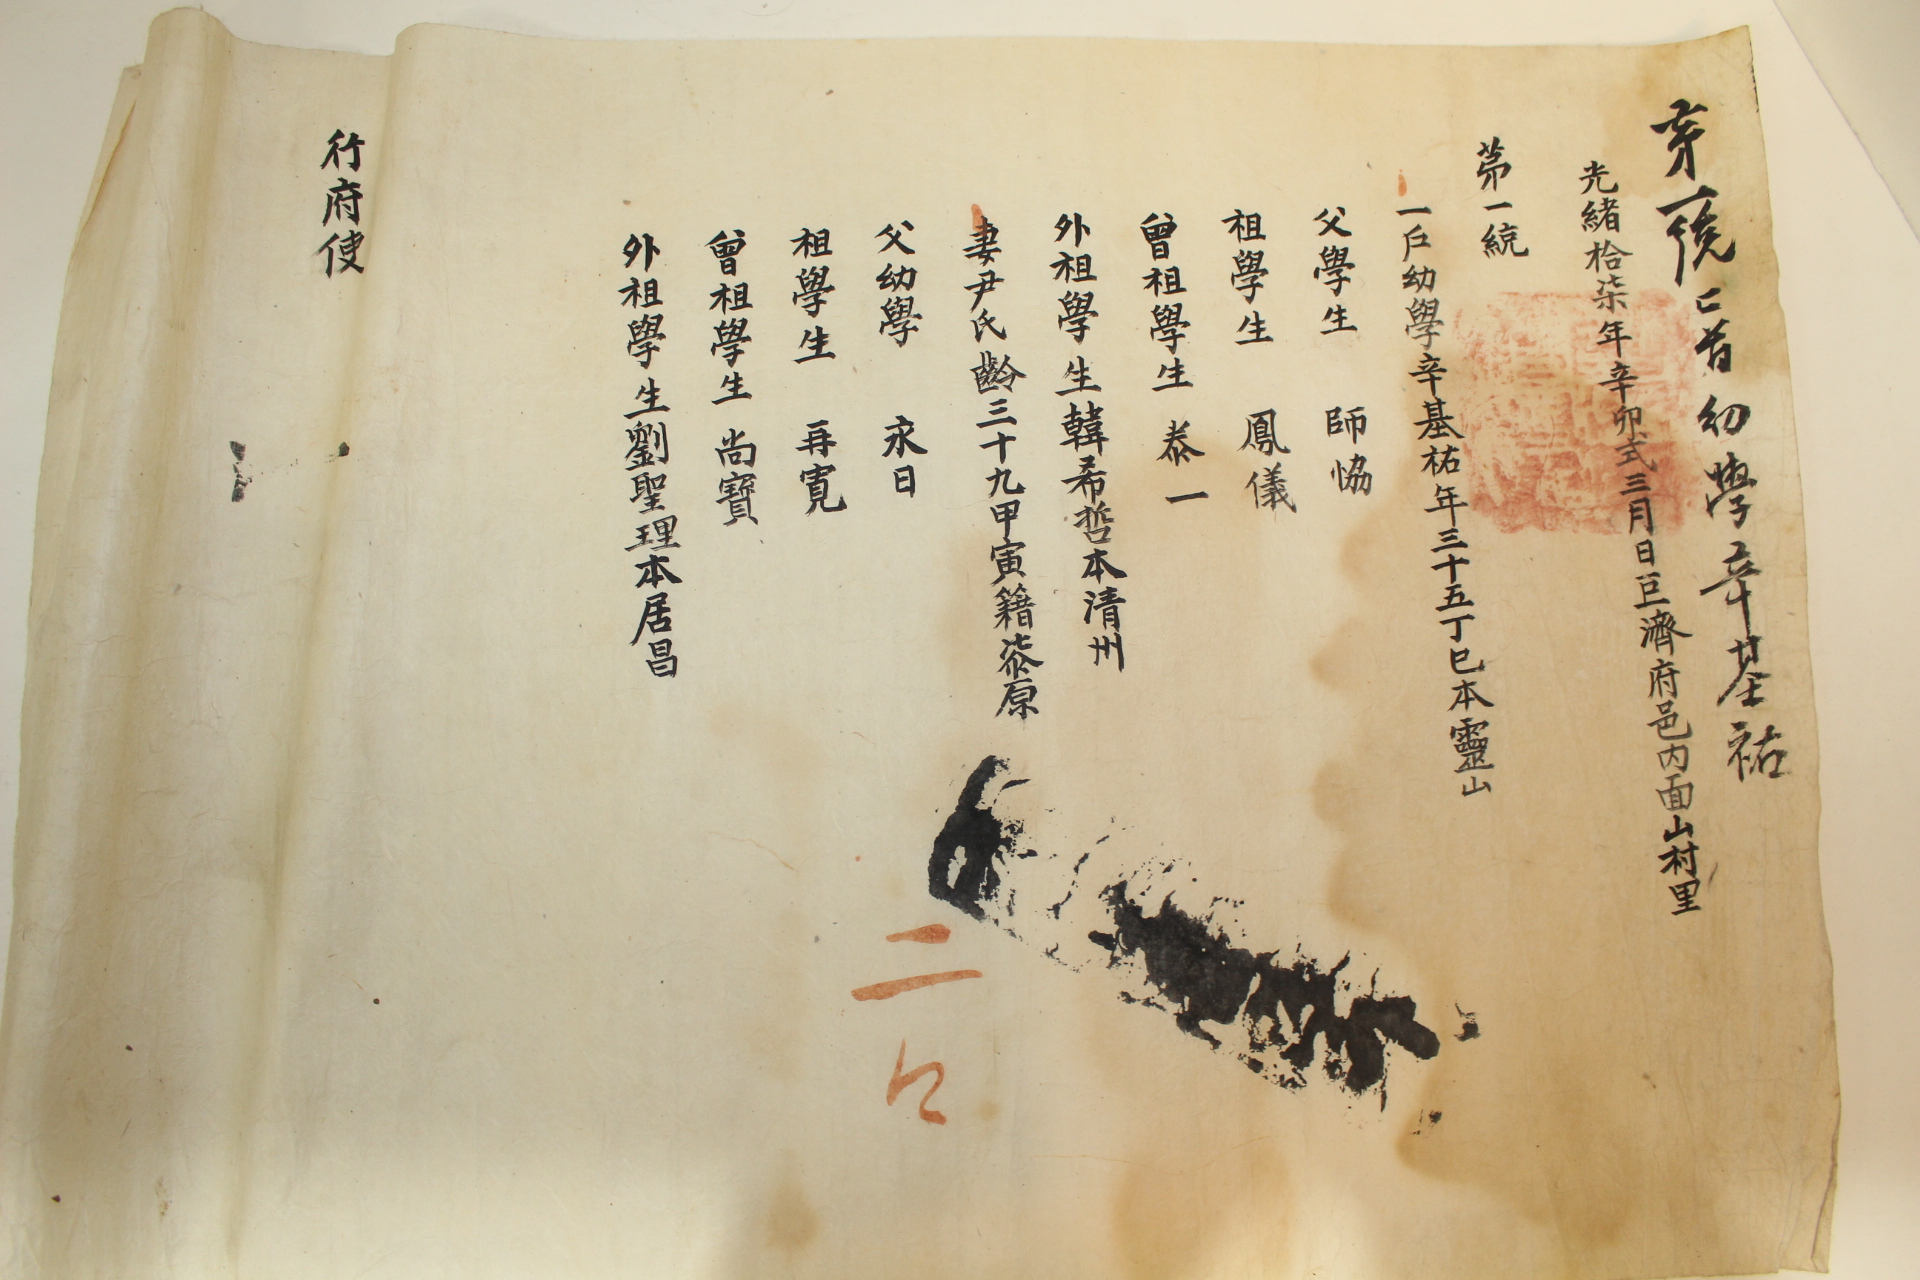 第一統已首幼學辛基祐
光緒拾柒年辛卯式三月日巨濟府邑內面山村里
第一統
一戶幼學辛基祐年三十五丁巳本靈山
父學生 師恊
祖學生 鳳儀
曾祖學生 泰一
外祖學生韓希哲本清州
妻尹氏齡三十九甲寅籍柒原
父幼學 永日
祖學生 再寬
曾祖學生 尚寶
外祖學生劉聖理本居昌
行府使
二口